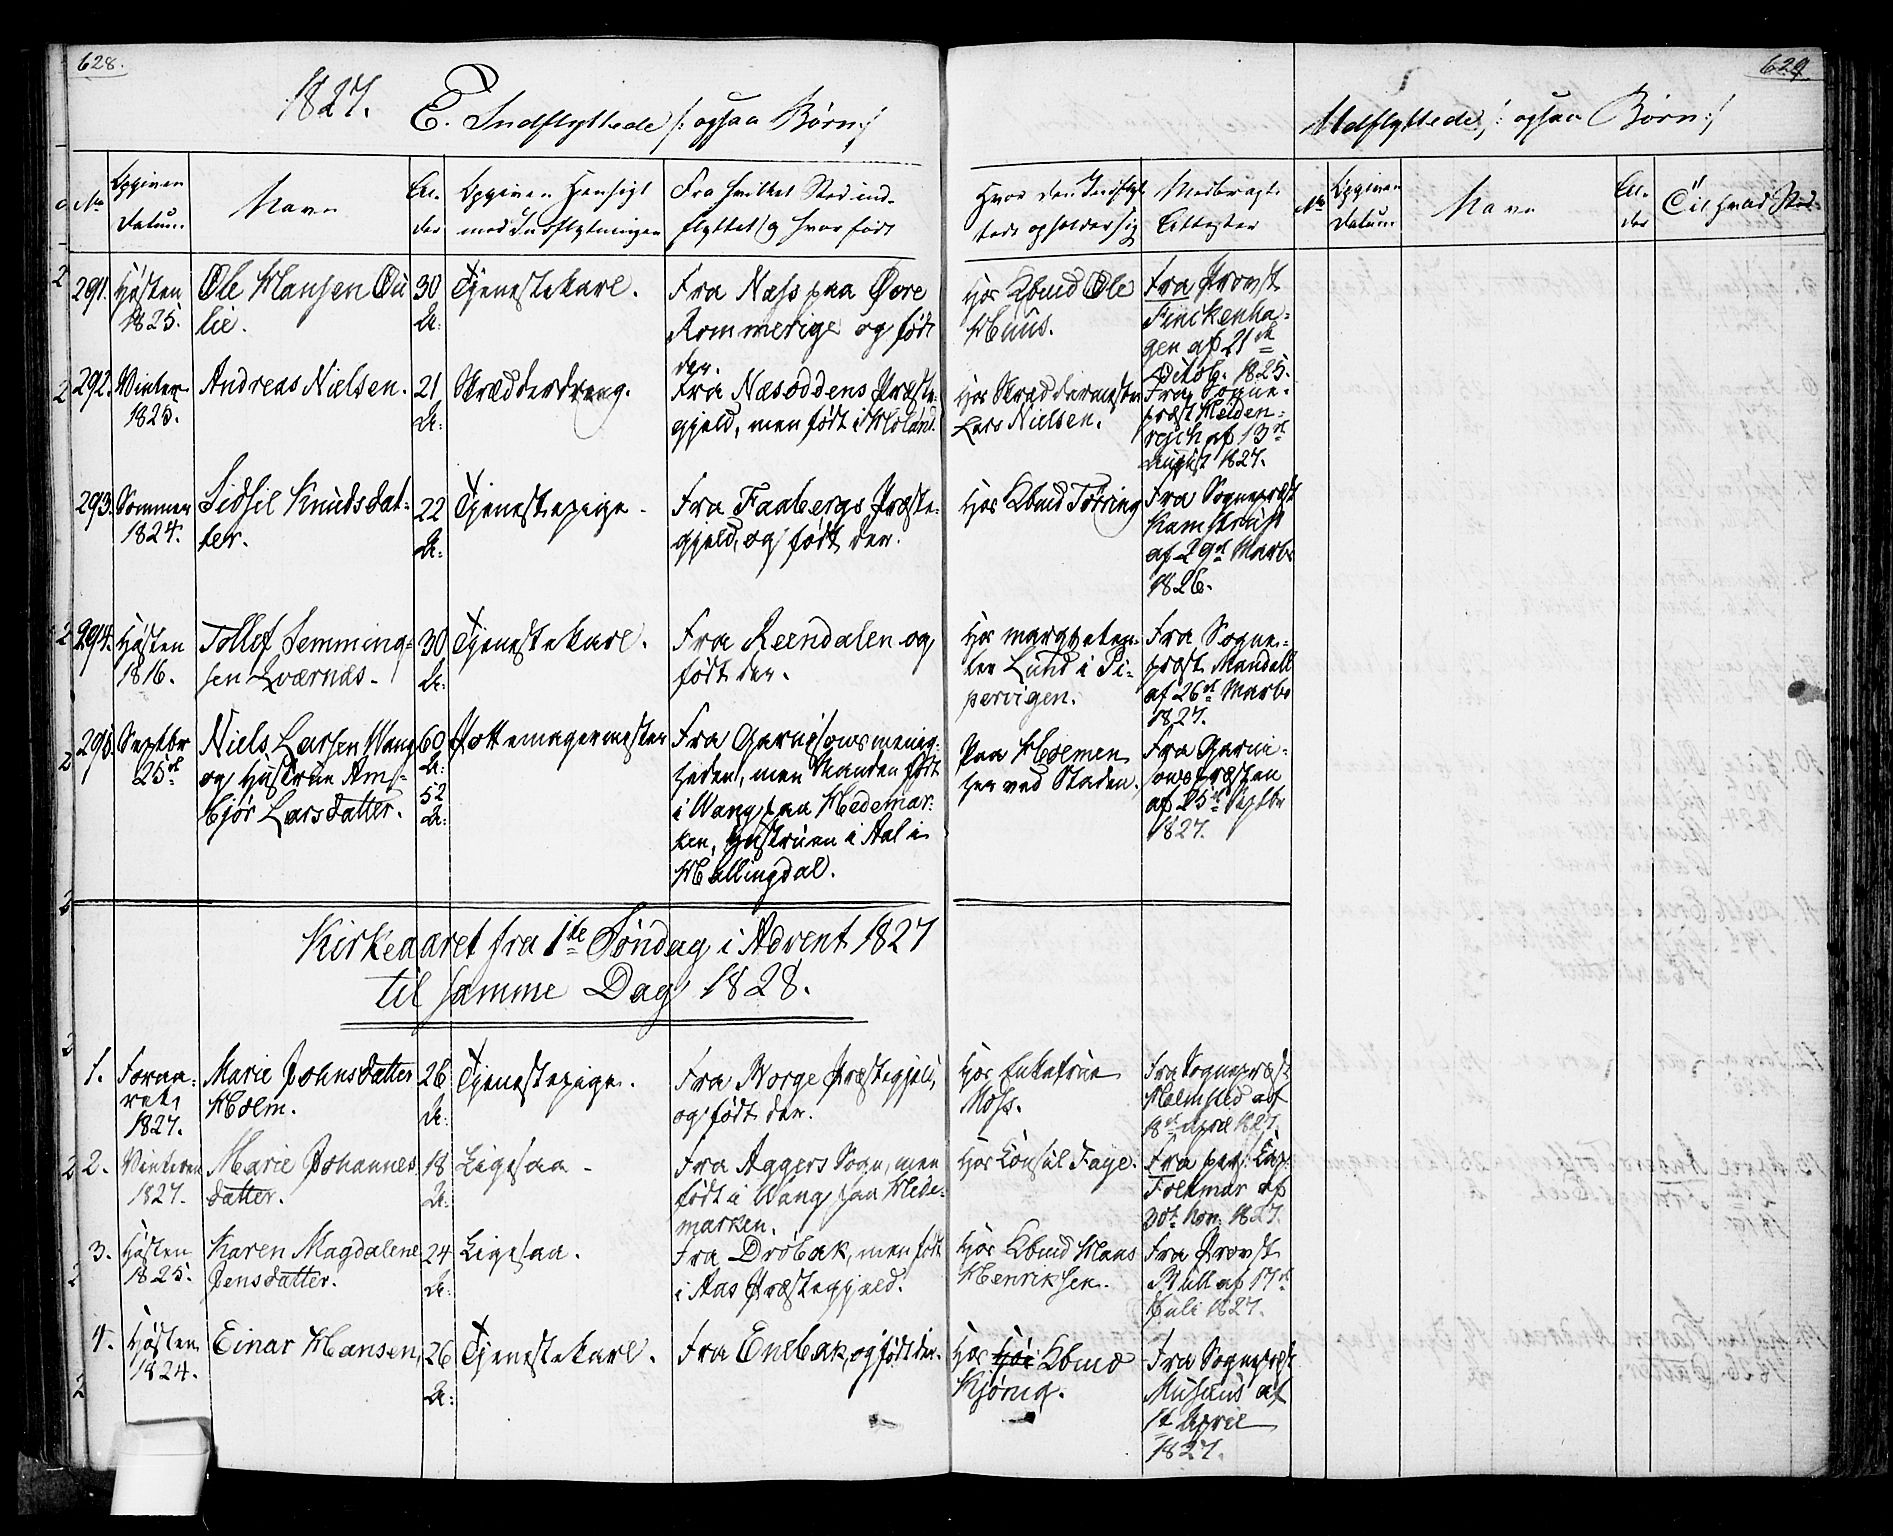 628.
1827.
E. Indflyttede /: ogsaa Børn :/
No
Opgiven Datum
Navn
Al-der
Opgiven Hensigt med Indflytningen
Fra hvilket Sted ind-flyttet og hvor født
Hvor den Indflyt-tede opholder sig
Medbragte Attester
291.
Høsten
1825.
Ole Hansen
lie.
30
A:
Tjenestekarl.
Fra Næss paa Øvre
Rommerige og født
der.
Hos Kbmd Ole
Huus.
Fra Provst
Finckenha-
gen af 21de
Octob. 1825.
292.
Vinter
1825.
Andreas Nielsen.
21
A:
Skrædderdreng.
Fra Næsoddens Præste-
gjeld, men født i Høland.
Hos Skræddermester
Lars Nielsen.
Fra Sogne-
præst Heiden-
reich af 13de
August 1827.
293.
Sommer
1824.
Sidsil Knudsdat-
ter.
22
A:
Tjenestepige -
Fra Faabergs Præste-
gjeld, og født der.
Hos Kbmd Tørring
Fra Sognepræst
Kamstrup
af 29de Marts
1826.
294.
Høsten
1816.
Tollef Semming-
sen Qværnæs -
30
A:
Tjenestekarl.
Fra Reendalen og
født der.
Hos marqveten-
ter Lund i Pi-
pervigen.
Fra Sogne-
præst Mandall
af 26de Marts
1827.
295.
Septbr
25de
Niels Larsen Wang
og Hustrue Am-
bjør Larsdatter.
60
A:
52
A:
Pottemagermester
Fra Garnisonsmenig-
heden, men Manden født
i Wang paa Hedemar-
ken, Hustruen i Aal i
Hallingdal.
Paa Holmen
her ved Staden.
Fra Garni-
sonspræsten
af 25de Septbr
1827.
Kirkeaaret fra 1te Søndag i Advent 1827
til samme Dag 1828.
1.
Foraa-
ret,
1827.
Marie Johnsdatter
Holm.
26
A:
Tjenestepige.
Fra Borge Præstegjeld,
og født der.
Hos Enkefrue
Moss.
Fra Sognepræst
Helmsted af
18de April 1827.
2.
Vinteren
1827.
Marie Johannes
datter.
18
A:
Ligesaa -
Fra Aggers Sogn, men
født i Wang paa Hede-
marken.
Hos Consul Faye.
Fra pers: Cap:
Foltmar af
30t Nov. 1827.
3.
Høsten
1825.
Karen Magdalene
Jensdatter.
24
A:
Ligesaa.
Fra Drøbak, men født
i Aas Præstegjeld.
Hos Kbmd Hans
Henriksen.
Fra Provst
Bull af 17de
Juli 1827.
4.
Høsten
1824.
Einar Hansen,
26
A:
Tjenestekarl.
Fra Enebak, og født der.
Hos Kbmd
Kjønig.
Fra Sognepræst
Musæus af
1t April
1827.
629.
Udflyttede /: ogsaa Børn :/
No
Opgiven Datum
Navn
Al-der
Til hvad Sted